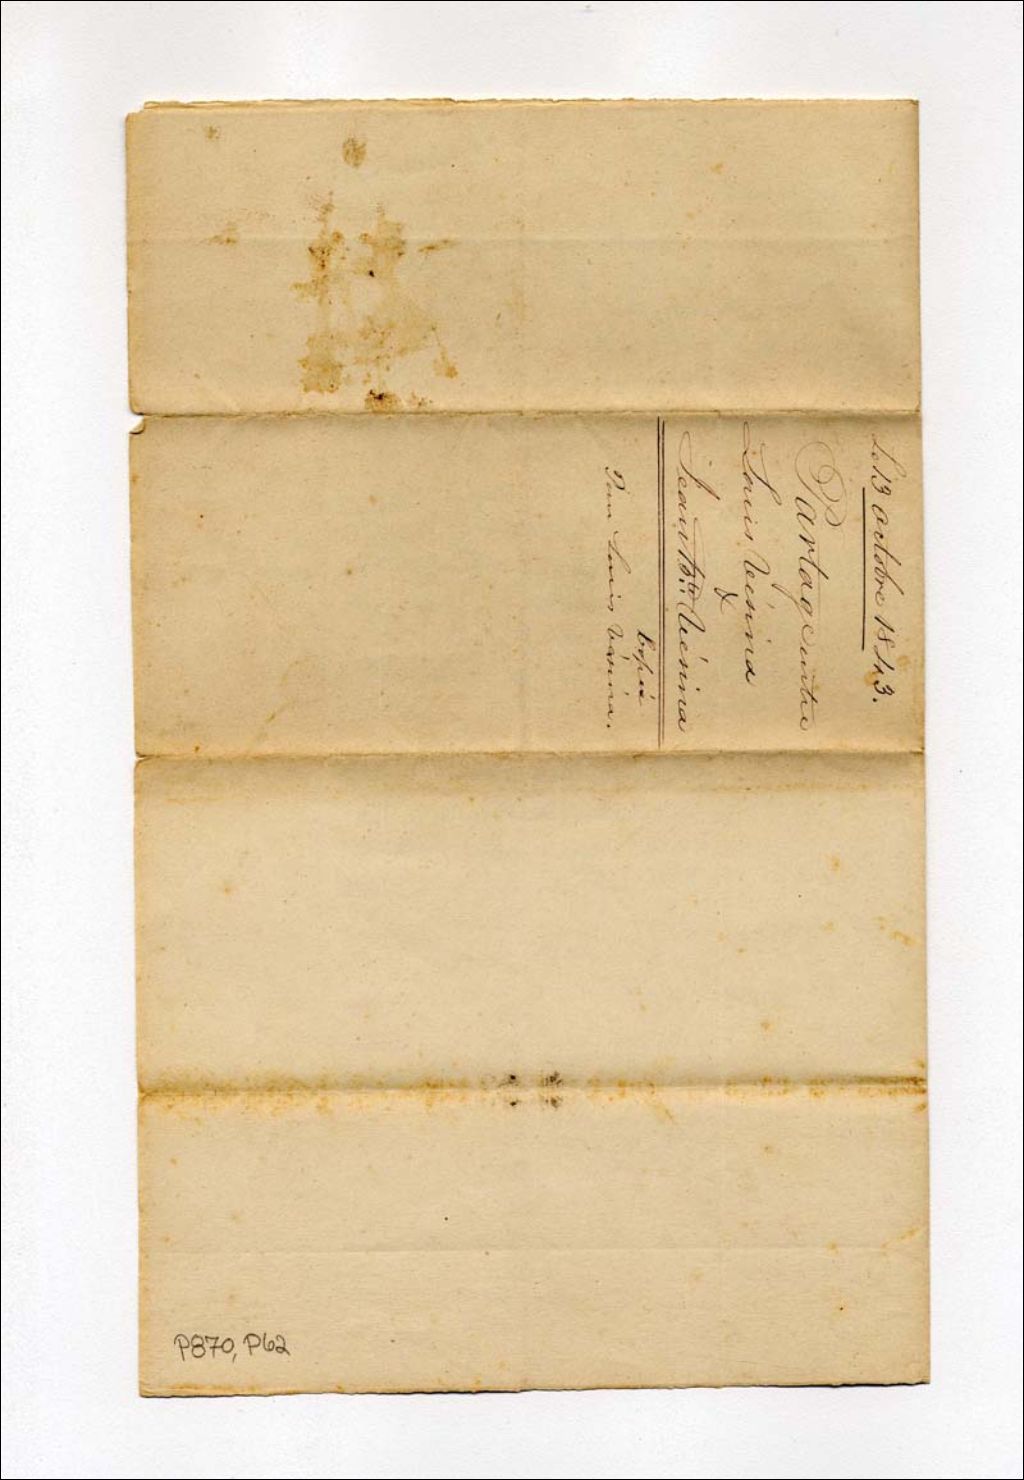 Le 13 octobre 1843.
Partage entre
Louis Vésina
&
Jean Bte Vésina
Copie
Pour Louis Vésina.
P870, P62